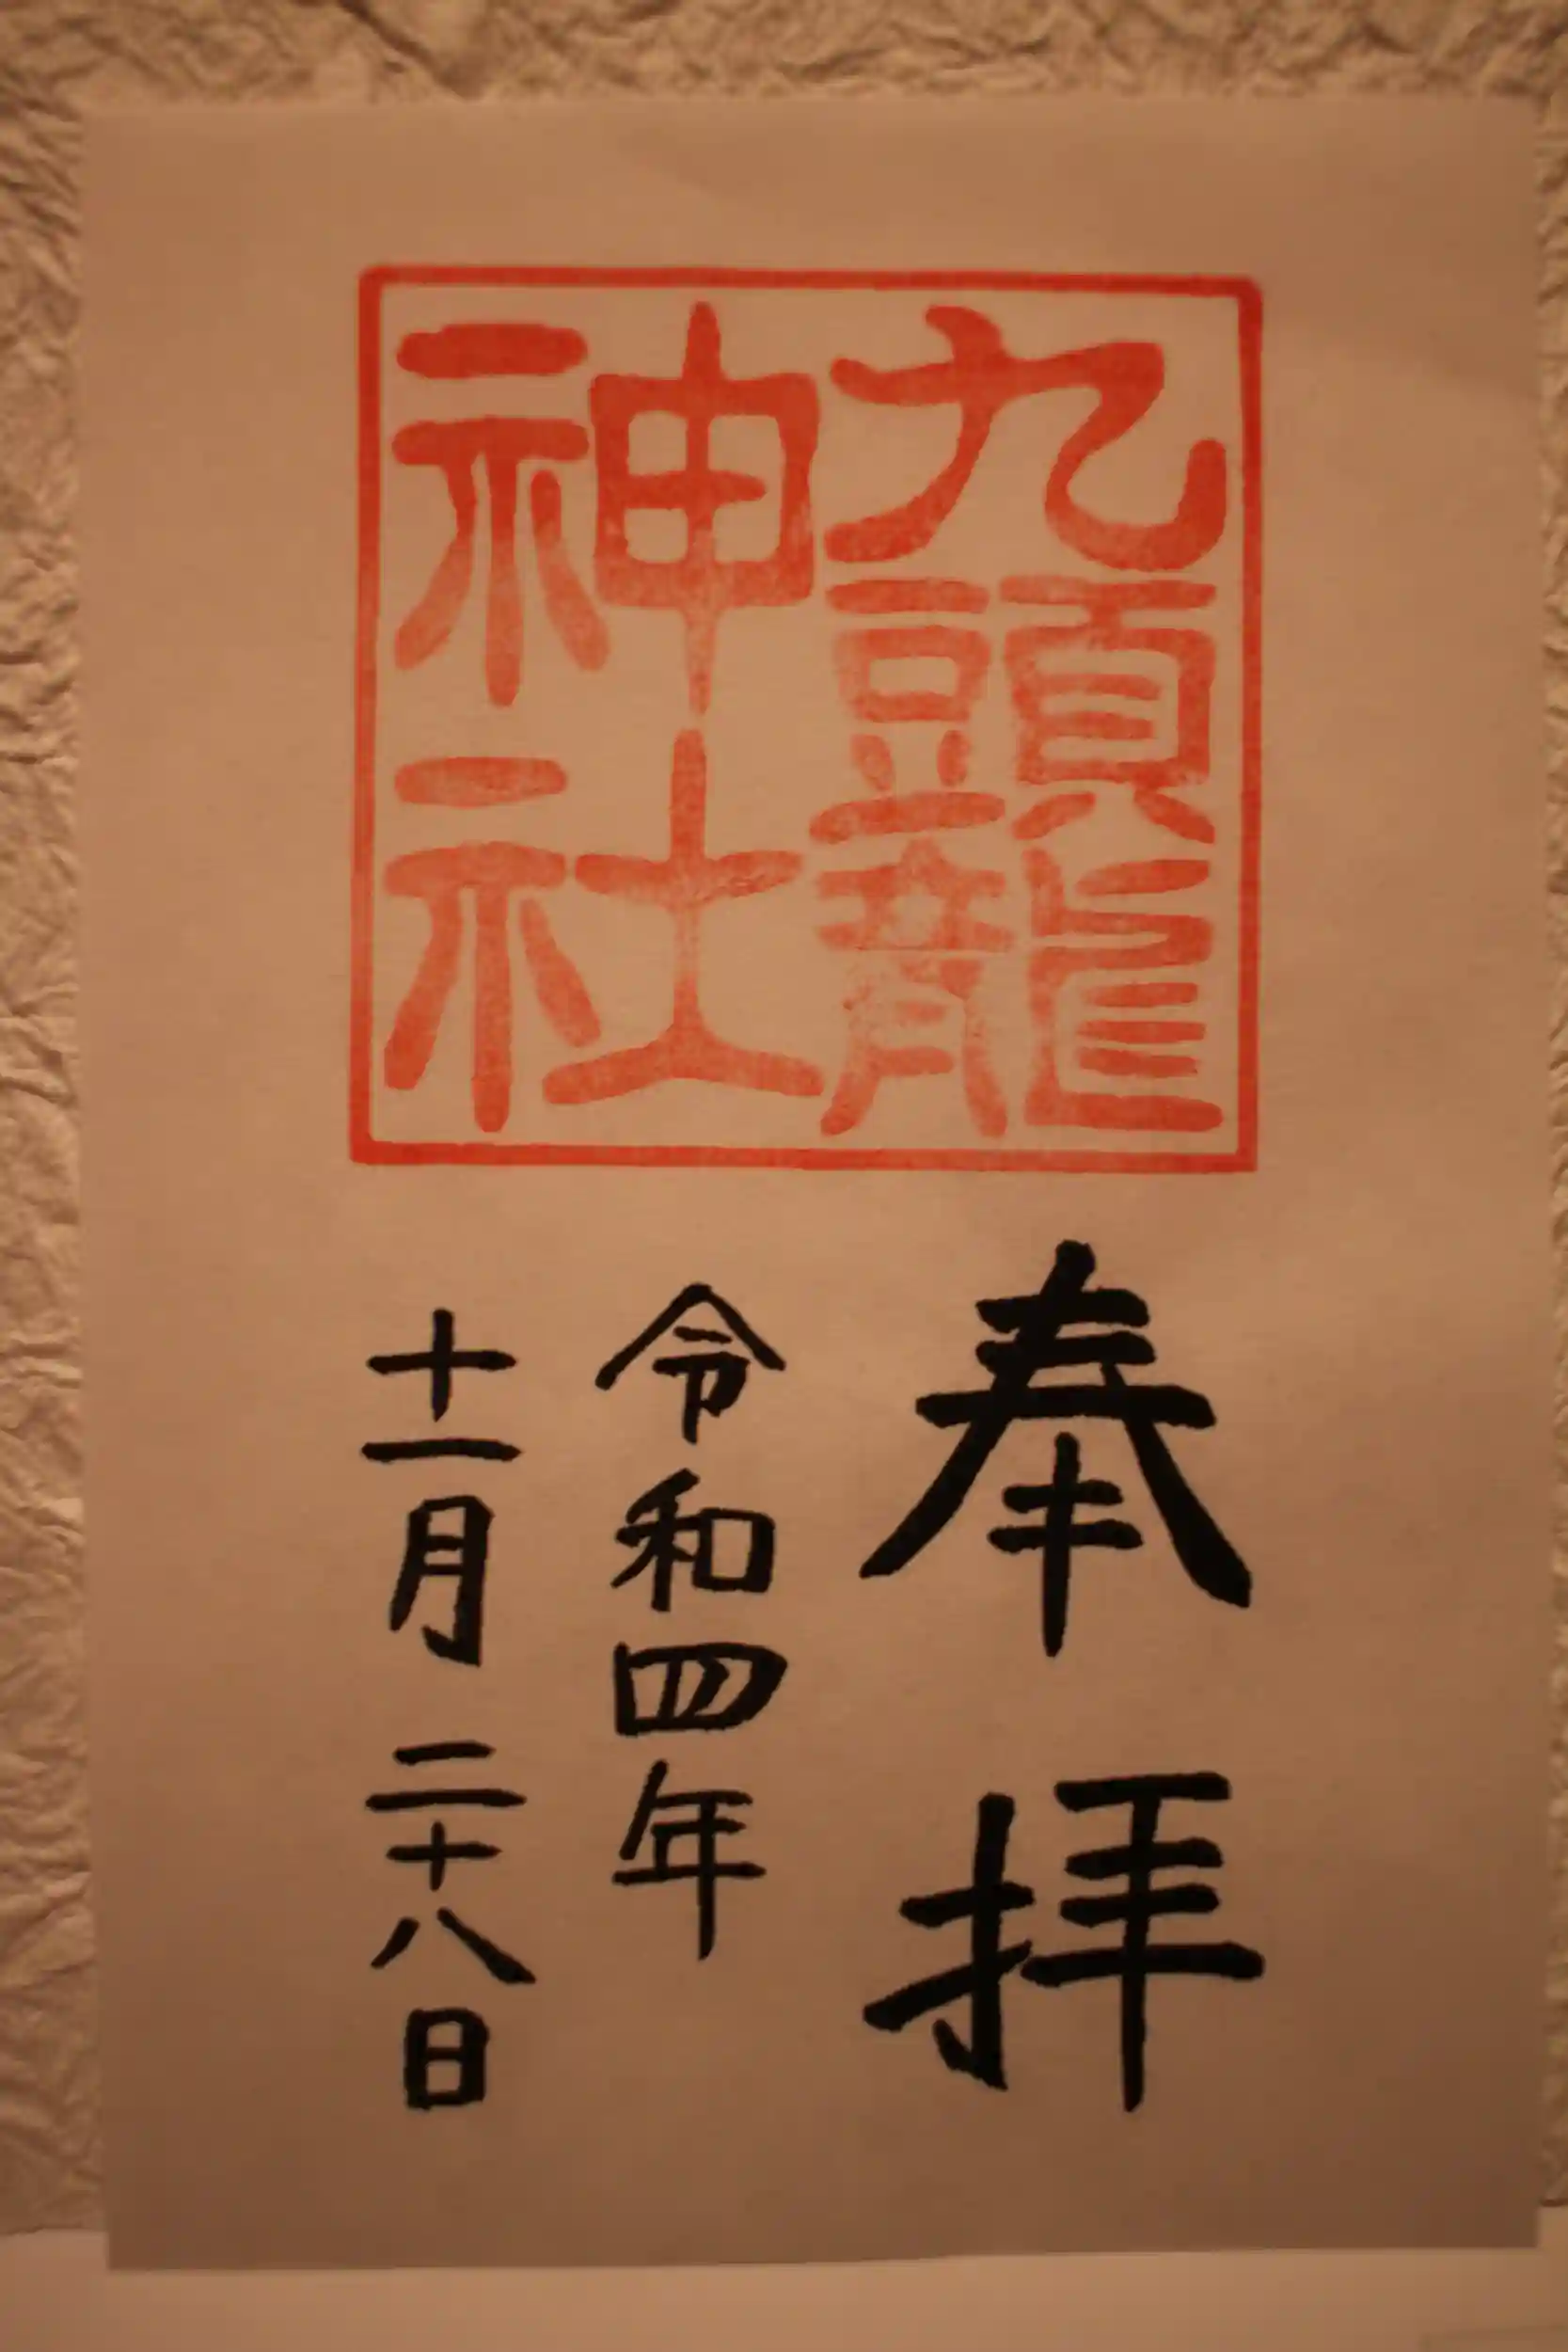 九頭龍
神社
奉拝
令和四年
十一月二十八日